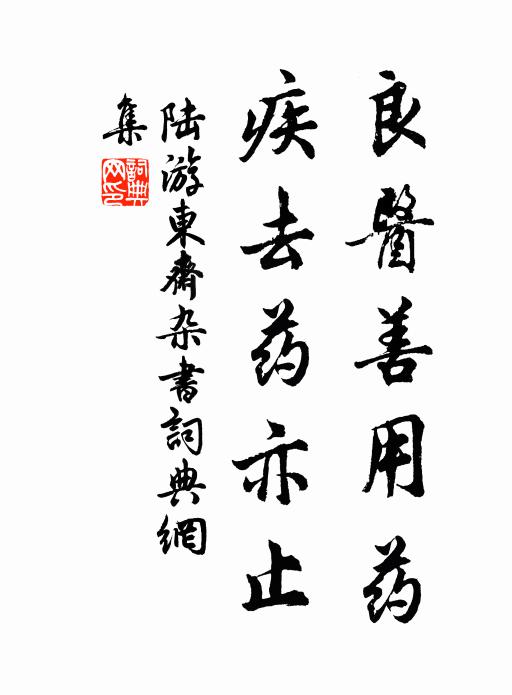 良醫善用药
疾去药亦止
陆游東齋杂書詞典網
集
詞典网印